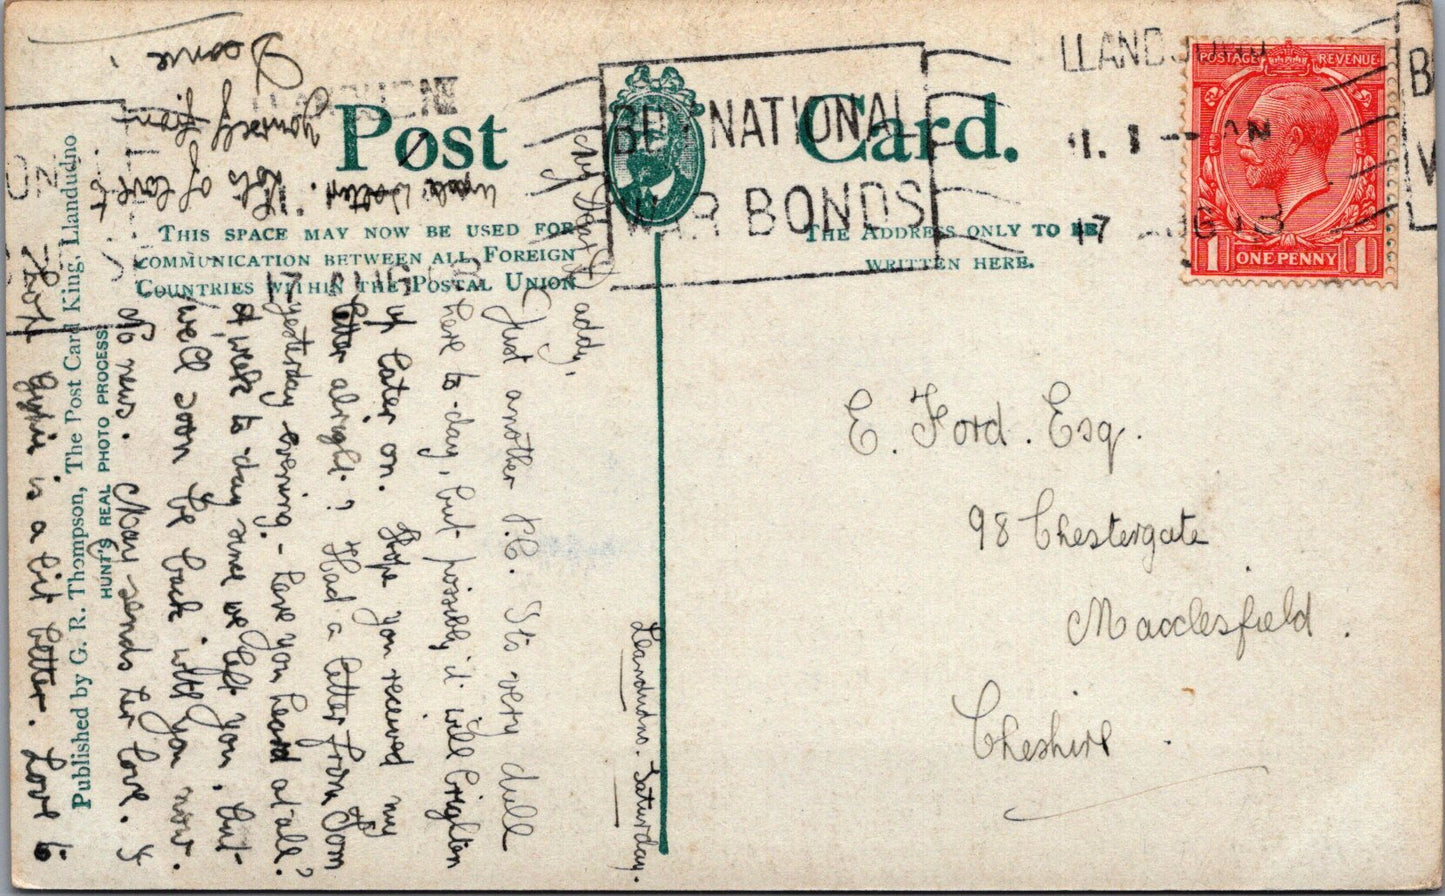 Post Card.
THIS SPACE MAY NOW BE USED FOR
COMMUNICATION BETWEEN ALL FOREIGN
COUNTRIES WITHIN THE POSTAL UNION
THE ADDRESS ONLY TO BE
WRITTEN HERE.
Published by G. R. Thompson, The Post Card King, Llandudno
HUNT'S REAL PHOTO PROCESS.
LLANDUDNO
NATIONAL
WAR BONDS
17 AUG 18
POSTAGE REVENUE
1 ONE PENNY 1
Llandudno. Saturday.
My Dearest Daddy,
Just another P.C. It is very dull
here to-day, but possibly it will brighten
up later on. Hope you received my
letter alright? Had a letter from Tom
yesterday evening. - have you heard at all?
A week to-day since we left you, but
we'll soon be back with you now.
No news. May sends her love. I
think is a bit better. Love to
Uncle Walter. Lots of love to
yourself from
E. Ford. Esq.
98 Chestergate
Macclesfield.
Cheshire.